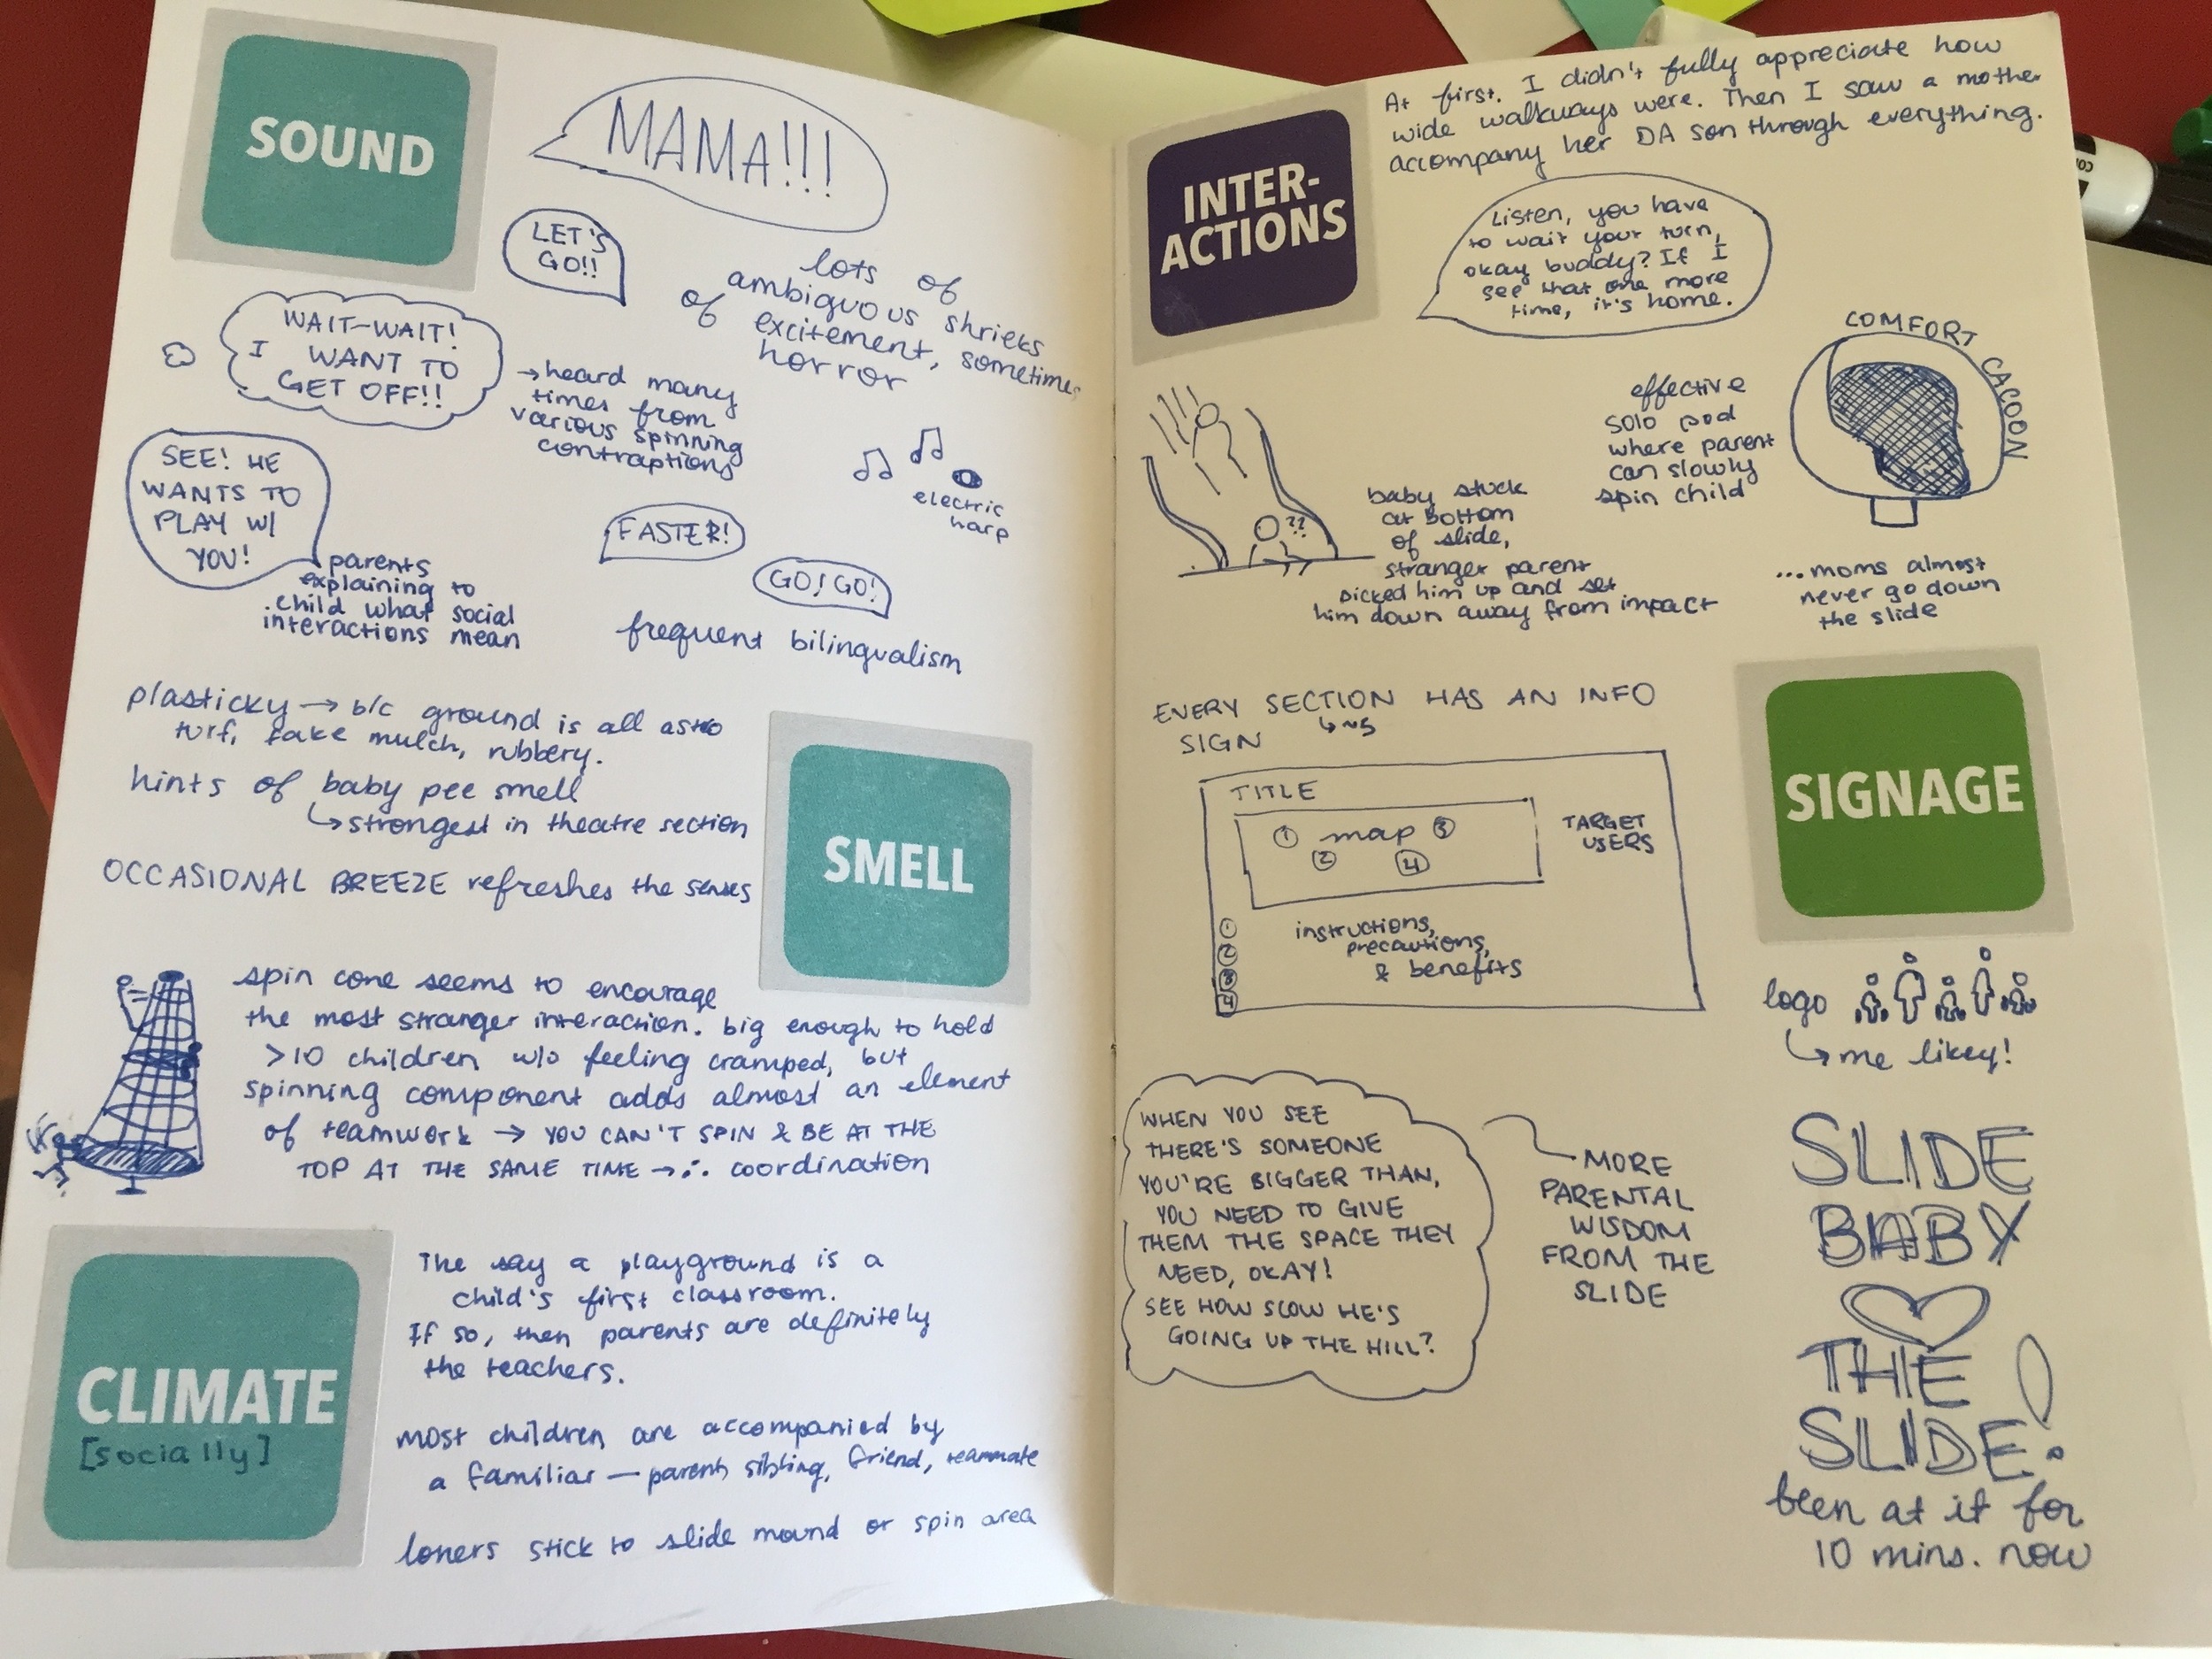 SOUND
MAMA!!!
LET'S
GO!!
lots of
ambiguous shrieks
of excitement, sometimes
horror
WAIT-WAIT!
I WANT TO
GET OFF!!
→ heard many
times from
various spinning
contraptions
SEE! HE
WANTS TO
PLAY W/
YOU!
parents
explaining to
child what social
interactions mean
electric
harp
FASTER!
GO! GO!
frequent bilingualism
plasticky → b/c ground is all astro
turf, fake mulch, rubbery.
hints of baby pee smell
↳ strongest in theatre section
OCCASIONAL BREEZE refreshes the senses
SMELL
spin cone seems to encourage
the most stranger interaction. big enough to hold
>10 children w/o feeling cramped, but
spinning component adds almost an element
of teamwork → YOU CAN'T SPIN & BE AT THE
TOP AT THE SAME TIME → ∴ coordination
CLIMATE
[socially]
The say a playground is a
child's first classroom.
If so, then parents are definitely
the teachers.
most children are accompanied by
a familiar — parent, sibling, friend, teammate
loners stick to slide mound or spin area
INTER-
ACTIONS
At first, I didn't fully appreciate how
wide walkways were. Then I saw a mother
accompany her DA son through everything.
Listen, you have
to wait your turn,
okay buddy? If I
see that one more
time, it's home.
COMFORT CACOON
effective
solo pod
where parent
can slowly
spin child
??
baby stuck
at bottom
of slide,
stranger parent
picked him up and set
him down away from impact
...moms almost
never go down
the slide
EVERY SECTION HAS AN INFO
SIGN ↳ ~5
TITLE
① map ③
② ④
TARGET
USERS
①
②
③
④
instructions,
precautions,
& benefits
SIGNAGE
logo
↳ me likey!
WHEN YOU SEE
THERE'S SOMEONE
YOU'RE BIGGER THAN,
YOU NEED TO GIVE
THEM THE SPACE THEY
NEED, OKAY!
SEE HOW SLOW HE'S
GOING UP THE HILL?
MORE
PARENTAL
WISDOM
FROM THE
SLIDE
SLIDE
BABY
♡
THE
SLIDE!
been at it for
10 mins. now